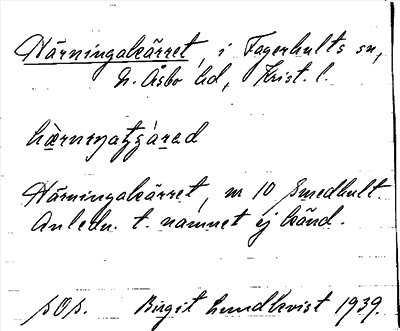 Närningakärret, i Fagerhults sn,
N. Åsbo hd, Krist. l.
Närningakärret, nr 10 Smedhult.
Anledn. t. namnet ej känd.
SOS. Birgit Lundkvist 1939.